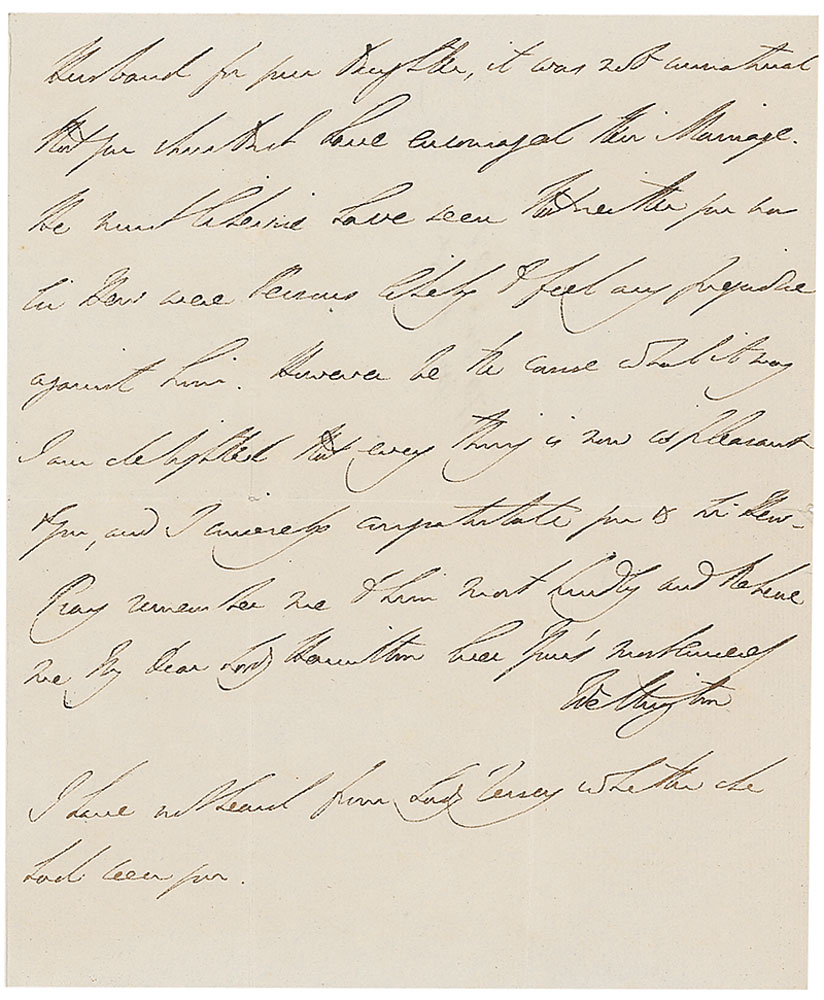 Husband for your Daughter, it was not unnatural
that you should have encouraged their Marriage.
He must likewise have seen that neither you nor
Sir Hew were Persons likely to feel any prejudice
against him. However be the cause what it may
I am delighted that every thing is now as pleasant
to you, and I sincerely congratulate you & Sir Hew–
Pray remember me to him most kindly and believe
me My Dear Lady Hamilton Ever Your's most sincerely
Wellington
I have not heard from Lady Jersey whether she
had seen you.